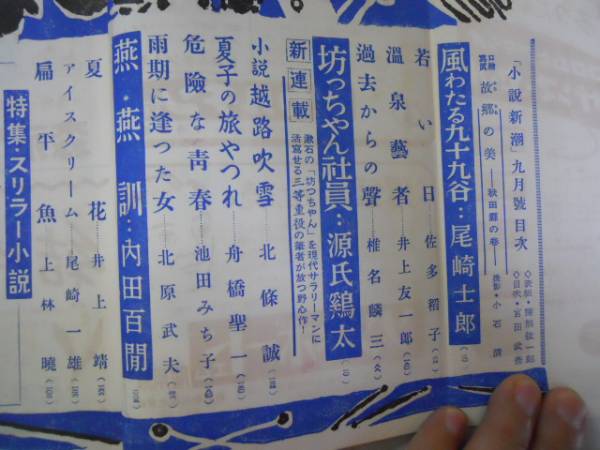 「小説新潮」九月號目次
口繪寫眞 故郷の美――秋田縣の巻――撮影・小石清
風わたる九十九谷：尾崎士郎
若い日……佐多稻子
溫泉藝者……井上友一郎
過去からの聲……椎名麟三
坊っちゃん社員：源氏鷄太
新連載
漱石の「坊つちゃん」を現代サラリーマンに
活寫せる三等重役の筆者が放つ野心作！
小説越路吹雪……北條誠
夏子の旅やつれ……舟橋聖一
危險な靑春……池田みち子
雨期に逢つた女……北原武夫
燕・燕訓：內田百閒
夏花……井上靖
アイスクリーム……尾崎一雄
扁平魚……上林曉
特集・スリラー小説